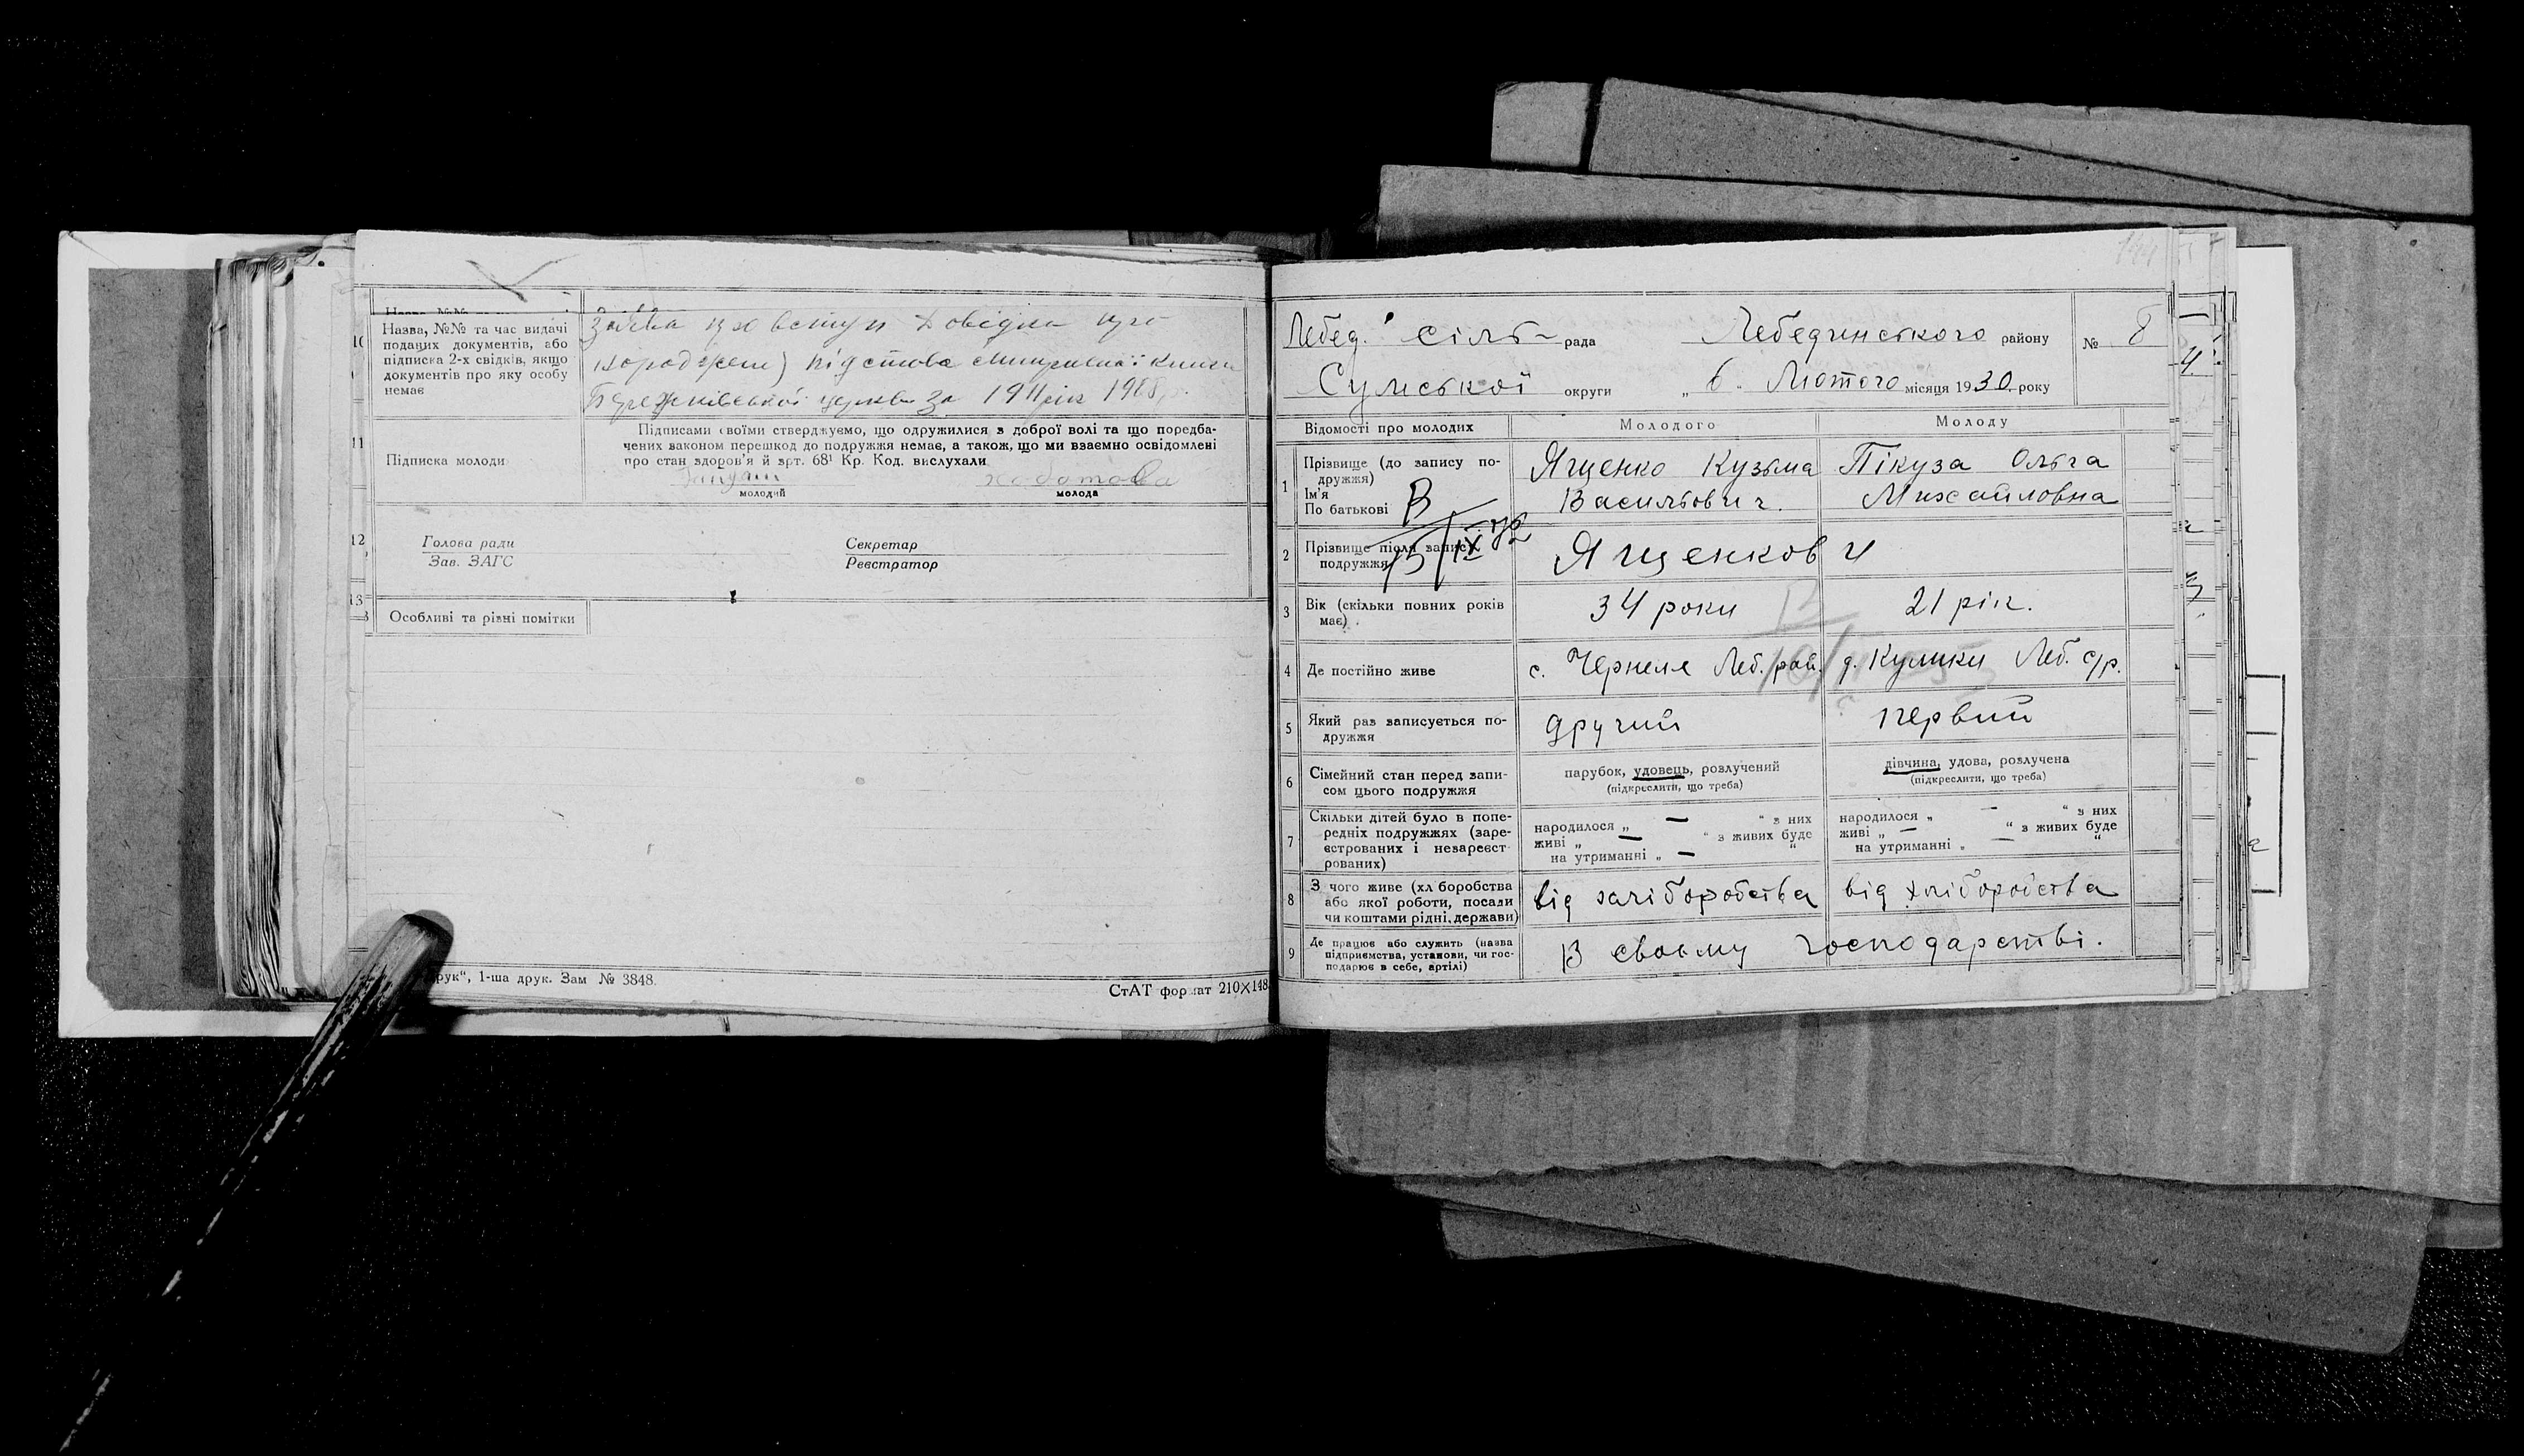 Назва, №№ та час видачі
поданих документів, або
підписка 2-х свідків, якщо
документів про яку особу
немає
Заява про вступ Довідка про
підстова книги
церкви за 1911 рік 1908 р.
11
Підписка молоди
Підписами своїми стверджуємо, що одружилися з доброї волі та що передба-
чених законом перешкод до подружжя немає, а також, що ми взаємно освідомлені
про стан здоров'я й арт. 68¹ Кр. Код. вислухали
молодий
молода
12
Голова ради
Зав. ЗАГС
Секретар
Реєстратор
13
Особливі та різні помітки
друк“, 1-ша друк. Зам № 3848.
СтАТ формат 210×148
144
Лебед. сіль- рада Лебединського району № 8
Сумської округи „ 6. Лютого місяця 1930 року
Відомості про молодих Молодого Молоду
1 Прізвище (до запису по-
дружжя)
Ім'я
По батькові
Ященко Кузьма
Васильович.
Пікуза Ольга
Михайловна
В
15/IX
2 Прізвище після запису
подружжя
Ященкови
3 Вік (скільки повних років
має)
34 роки
21 рік.
4 Де постійно живе
с. Чернеля Леб. рай.
д. Кулики Леб. с/р.
5 Який раз записується по-
дружжя
другий
первий
6 Сімейний стан перед запи-
сом цього подружжя
парубок, удовець, розлучений
(підкреслити, що треба)
дівчина, удова, розлучена
(підкреслити, що треба)
7 Скільки дітей було в попе-
редніх подружжях (заре-
єстрованих і незареєст-
рованих)
народилося „ — “ з них
живі „ — “ з живих буде
на утриманні „ — “
народилося „ — “ з них
живі „ — “ з живих буде
на утриманні „ — “
8 З чого живе (хліборобства
або якої роботи, посади
чи коштами рідні, держави)
від хліборобства
від хліборобства
9 Де працює або служить (назва
підприємства, установи, чи гос-
подарює в себе, артілі)
В своьму господарстві.